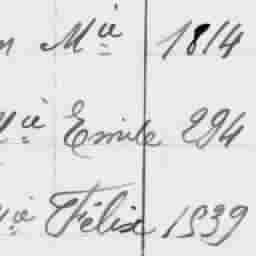 n Mie 1814
Mie Emile 294
Mie Félix 1939